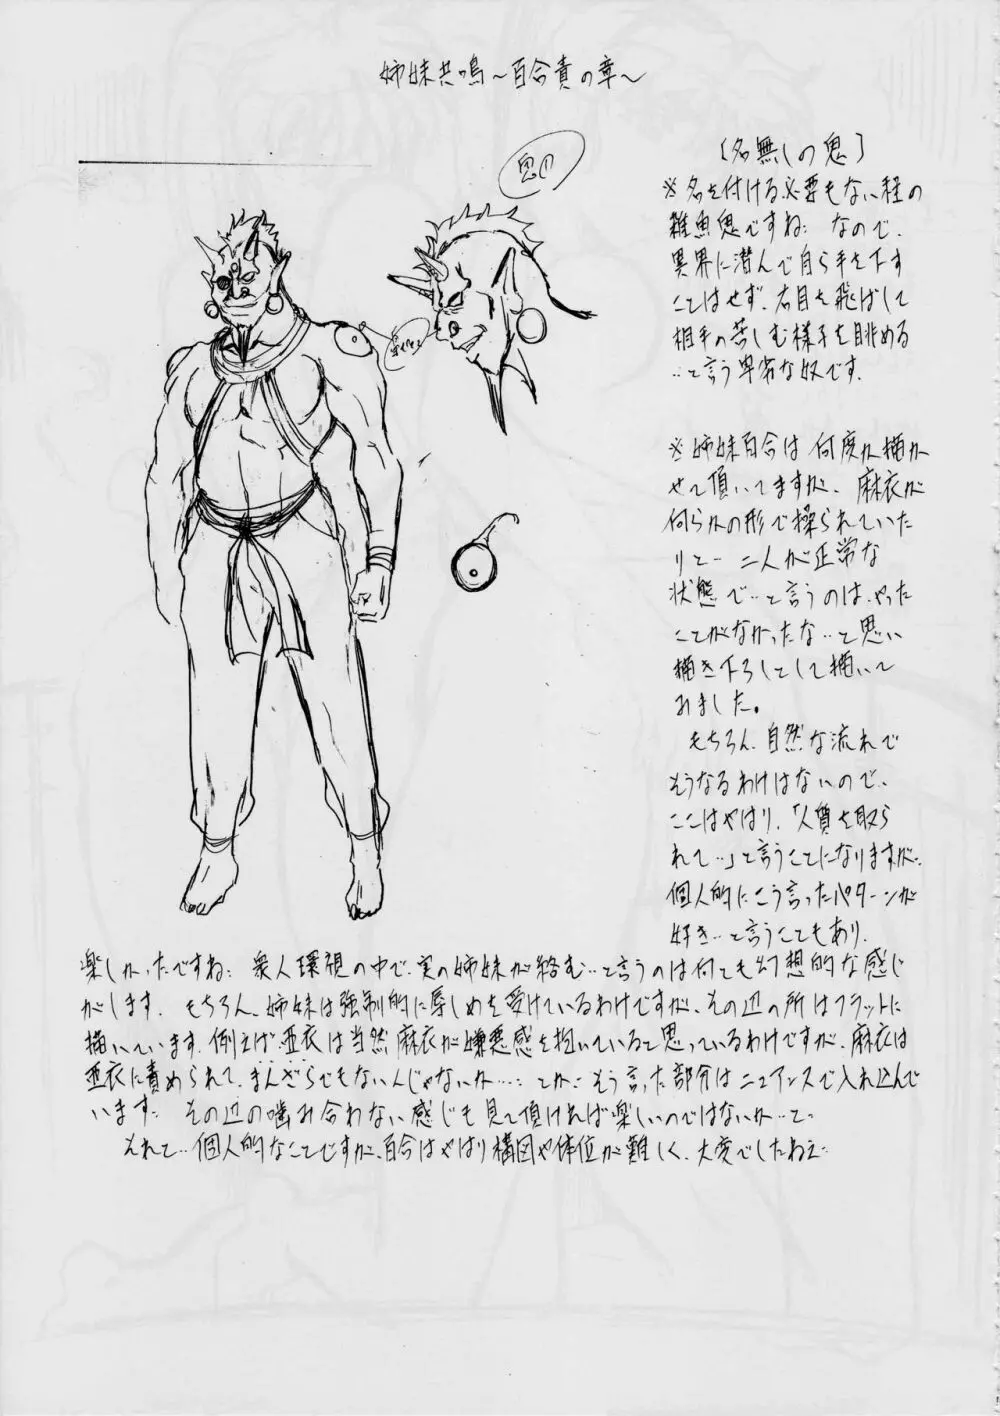 姉妹共鳴～百合責の章～
鬼(1)
[名無しの鬼]
※名を付ける必要もない程の
雑魚鬼ですね… なので、
異界に潜んで自ら手を下す
ことはせず、右目を飛ばして
相手の苦しむ様子を眺める
…と言う卑劣な奴です。
※姉妹百合は何度か描か
せて頂いてますが、麻衣が
何らかの形で操られていた
りと… 二人が正常な
状態で…と言うのは、やった
ことがなかったな…と思い
描き下ろしとして描いて
みました。
もちろん、自然な流れで
そうなるわけはないので、
ここはやはり、「人質を取ら
れて…」と言うことになりますが…
個人的にこう言ったパターンが
好き…と言うこともあり、
楽しかったですね… 衆人環視の中で、実の姉妹が絡む…と言うのは何とも幻想的な感じ
がします。 もちろん、姉妹は強制的に辱しめを受けているわけですが、その辺の所はフラットに
描いています。例えば、亜衣は当然麻衣が嫌悪感を抱いていると思っているわけですが、麻衣は
亜衣に責められて、まんざらでもないんじゃないか…… とか… そう言った部分はニュアンスで入れ込んで
います… その辺の噛み合わない感じも見て頂ければ楽しいのではないか…と…
それと… 個人的なことですが、百合はやはり構図や体位が難しく、大変でしたねぇ…